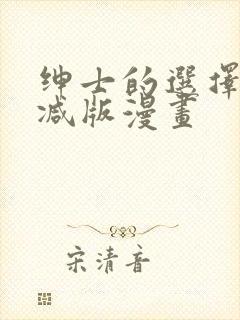 绅士的選擇
减版漫畫
宋清音